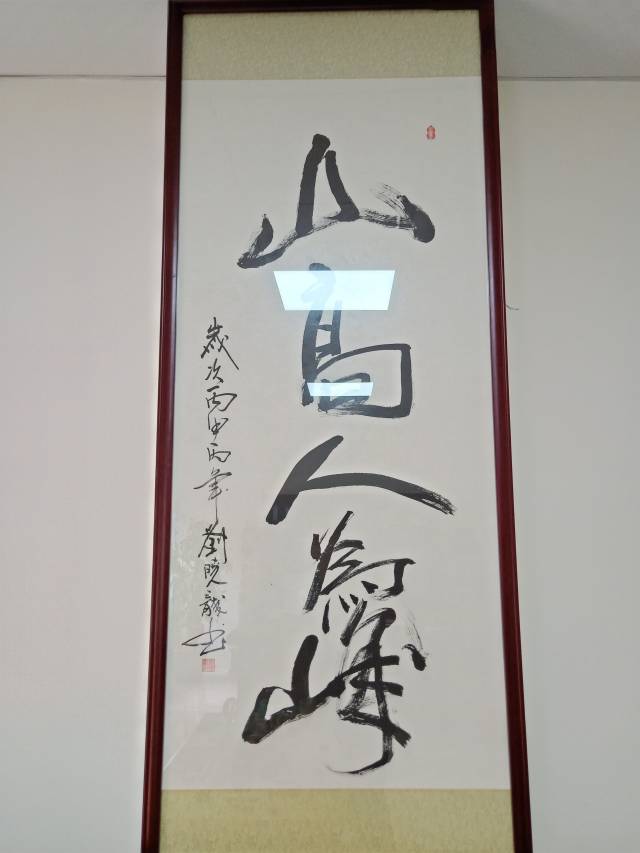 山高人為峰
歲次丙申丙年劉曉龍書